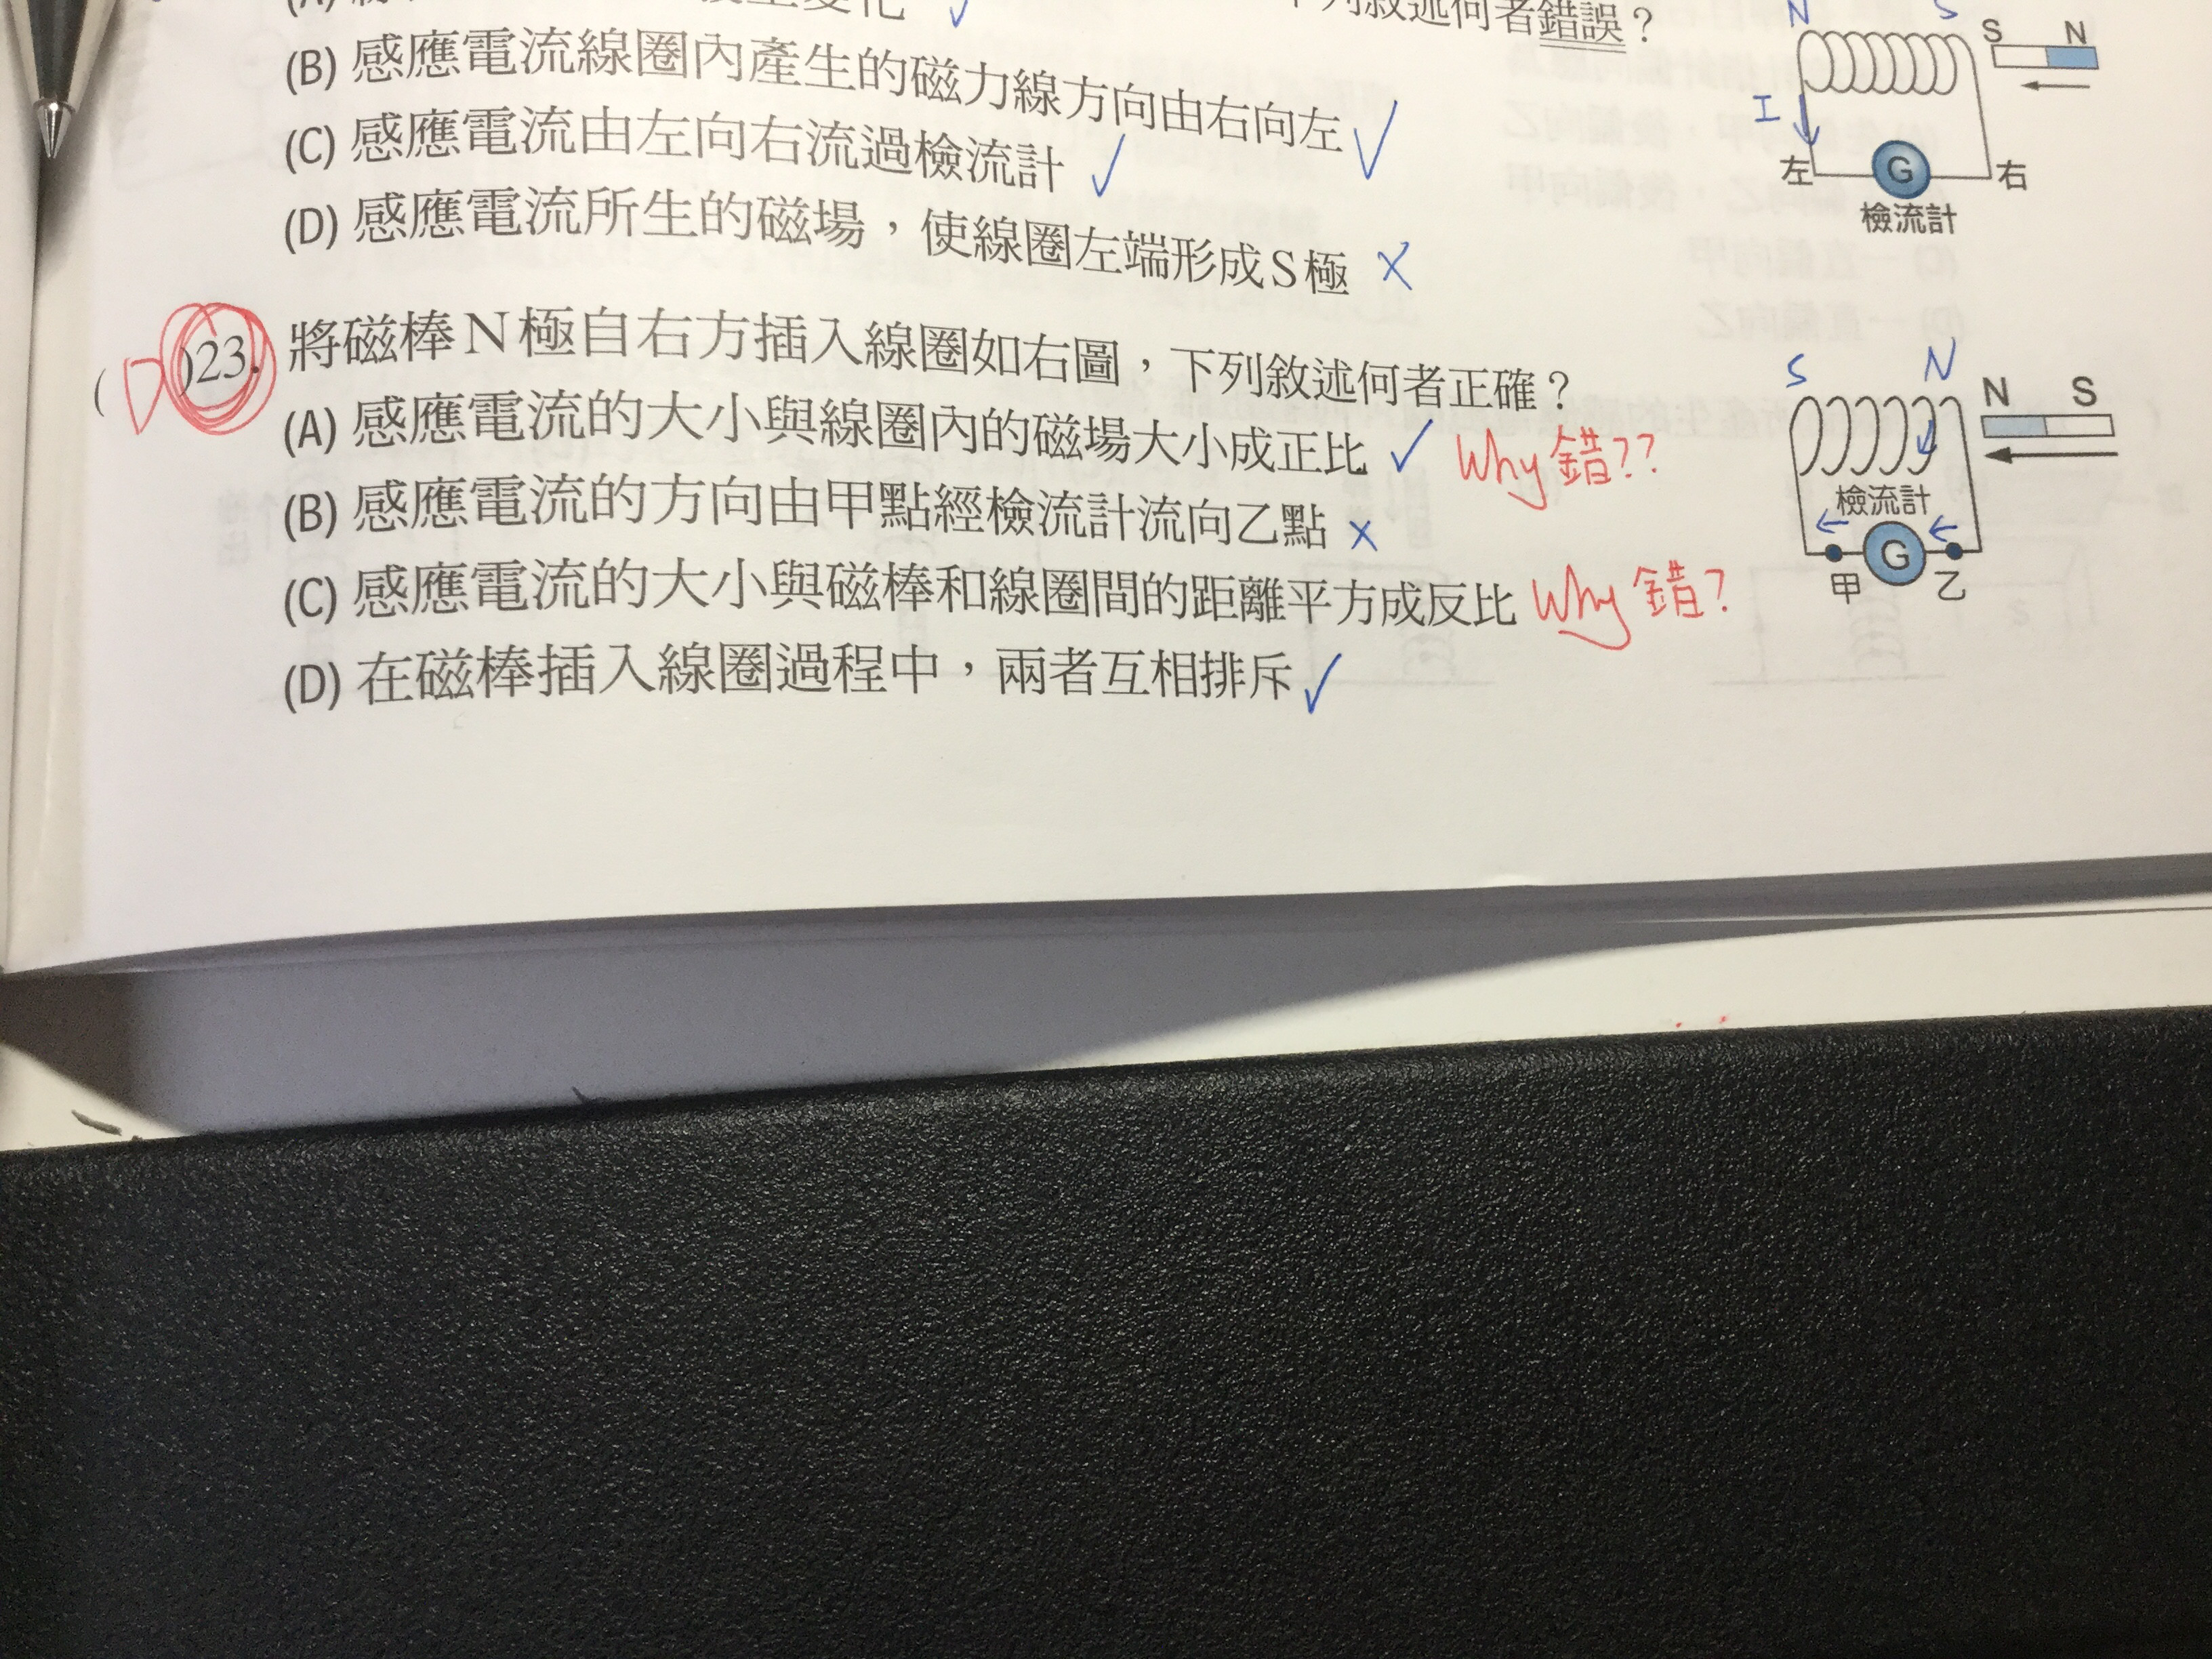 下列敘述何者錯誤？
(B) 感應電流線圈內產生的磁力線方向由右向左 ✓
(C) 感應電流由左向右流過檢流計 ✓
(D) 感應電流所生的磁場，使線圈左端形成S極 ×
N S
S N
I
左 G 右
檢流計
( D )23. 將磁棒N極自右方插入線圈如右圖，下列敘述何者正確？
(A) 感應電流的大小與線圈內的磁場大小成正比 ✓ Why 錯??
(B) 感應電流的方向由甲點經檢流計流向乙點 ×
(C) 感應電流的大小與磁棒和線圈間的距離平方成反比 Why 錯?
(D) 在磁棒插入線圈過程中，兩者互相排斥 ✓
S N
N S
檢流計
G
甲 乙